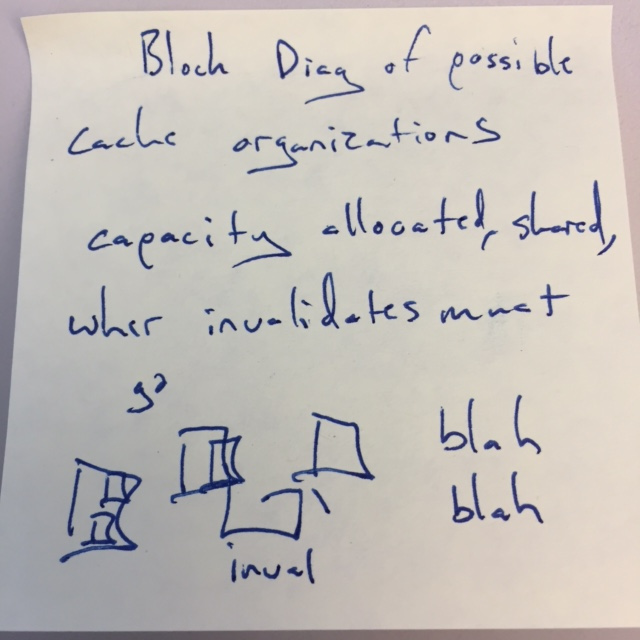 Block Diag of possible
cache organizations
capacity allocated, shared,
wher invalidates must
go
blah
blah
inval